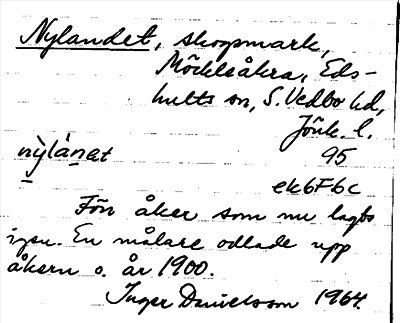 Nylandet, skogsmark,
Möcklåkra, Eds-
hults sn, S. Vedbo hd,
Jönk. l.
nỳlánat 95
ek6F6c
Förr åker som nu lagts
igen. En målare odlade upp
åkern o. år 1900.
Inger Danielsson 1964.